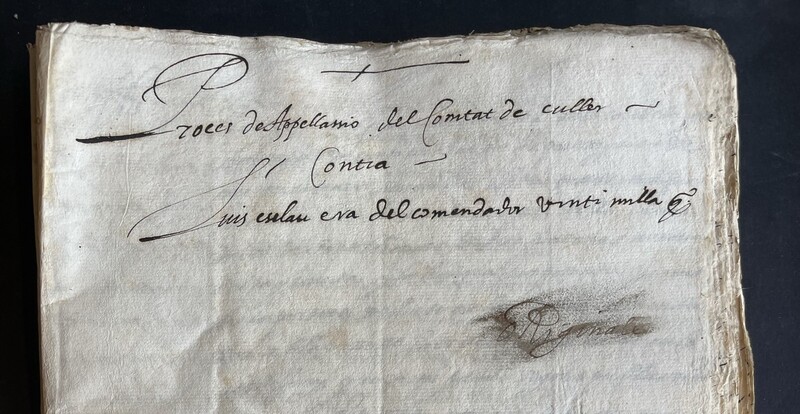 Proces de Appellassio del Comtat de culler
Contra
Luis esclau era del comendador vinti milla